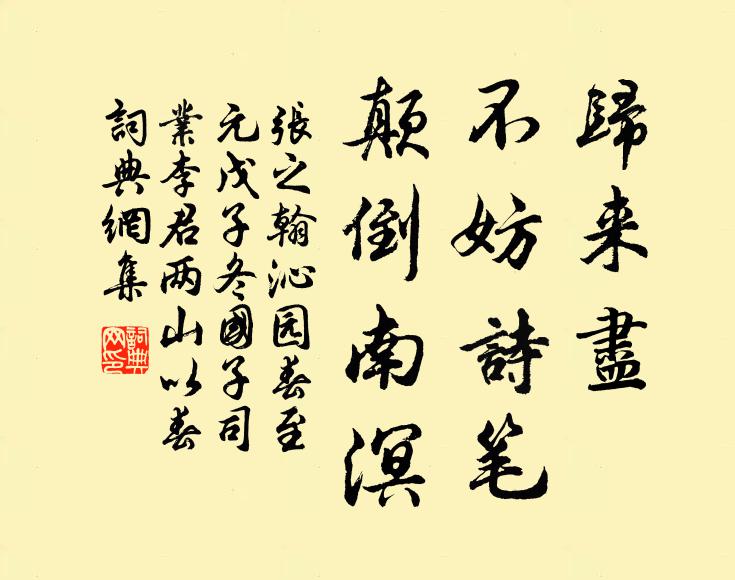 歸来盡
不妨詩笔
顛倒南溟
張之翰沁园春至
元戊子冬國子司
業李君两山以春
詞典網集
詞典
网印